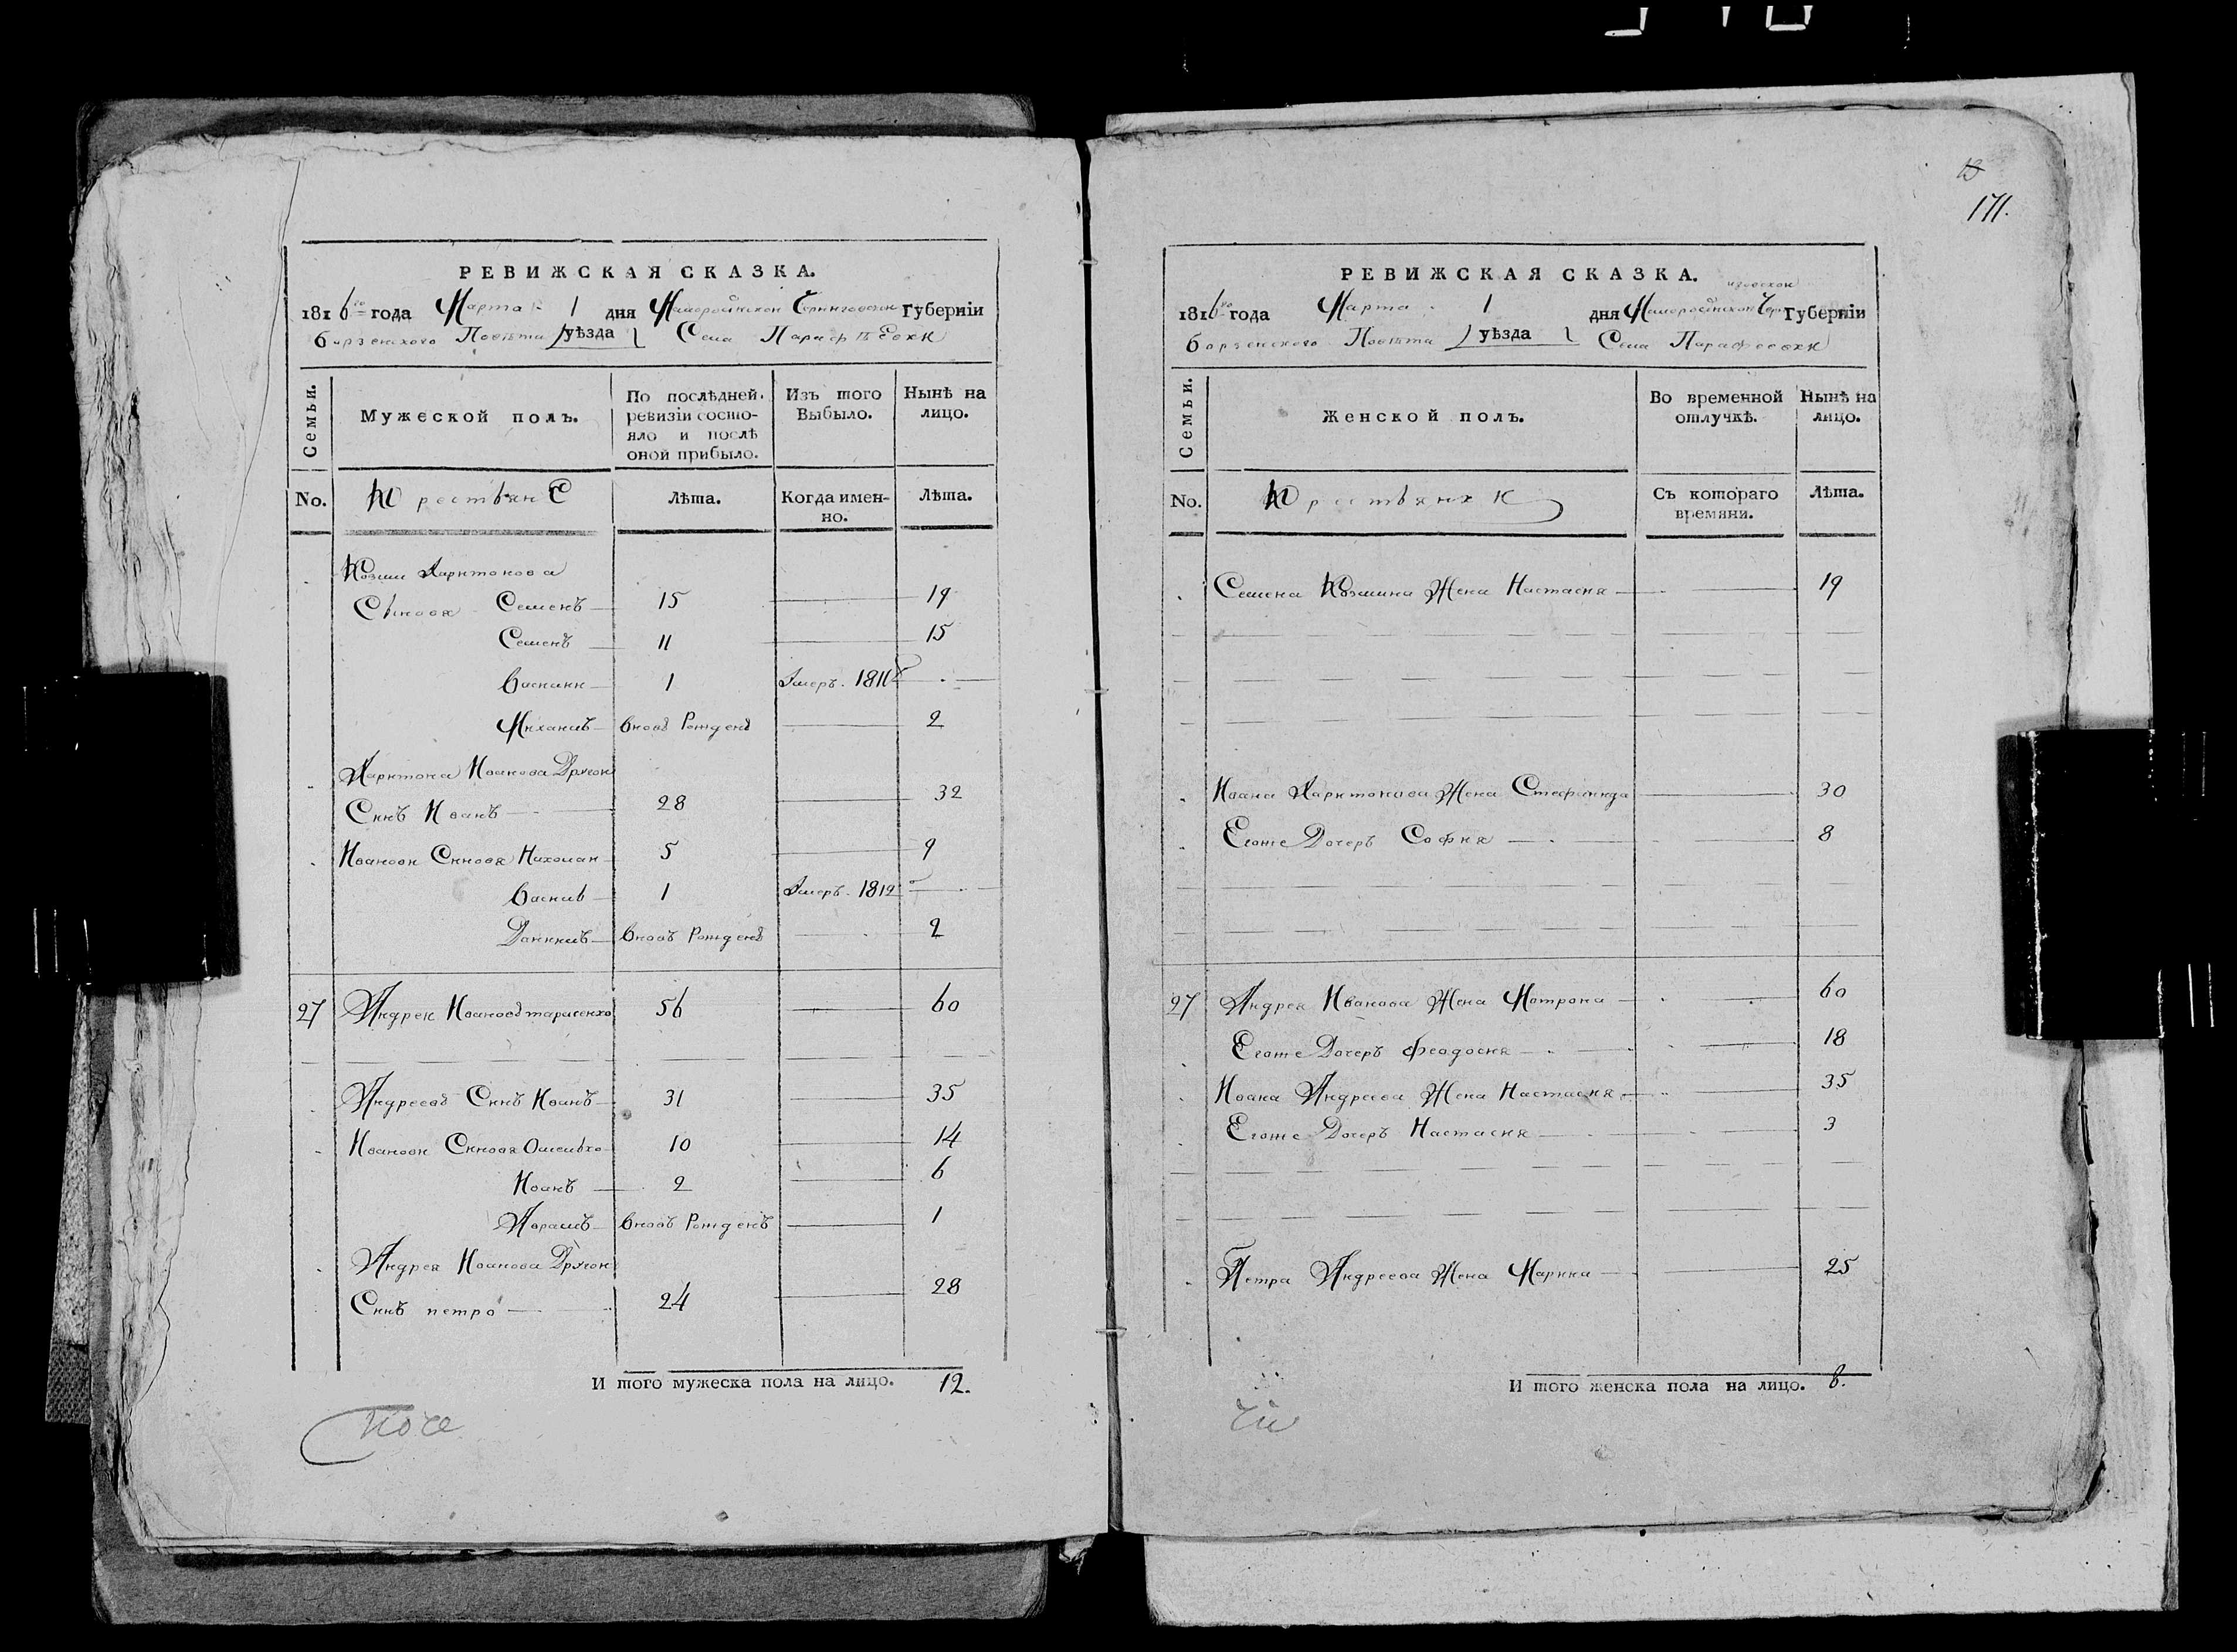 РЕВИЖСКАЯ СКАЗКА.
1816го года Марта 1 дня Малоросійской Черниговской Губерніи
борзенского Повѣта уѣзда Села Парафѣевки
Семьи.
Мужеской полъ.
По послѣдней ревизіи состояло и послѣ оной прибыло.
Изъ того Выбыло.
Нынѣ на лицо.
No. Крестьяне Лѣта. Когда именно. Лѣта.
Козми Харитонова
Сыновя Семенъ 15 19
Семенъ 11 15
Василий 1 Умеръ 1811
Михаилъ вновъ Рожденъ 2
Харитона Иванова Другой
Синъ Иванъ 28 32
Ивановы Синовя Николай 5 9
Василь 1 Умеръ 1812
Даниилъ вновъ Рожденъ 2
27 Андрей Ивановъ тарасенко 56 60
Андреевъ Синъ Иванъ 31 35
Ивановы Синовя Омелько 10 14
Иванъ 2 6
Аврамъ вновъ Рожденъ 1
Андрея Иванова Другой
Синъ петро 24 28
И того мужеска пола на лицо. 12.
171.
РЕВИЖСКАЯ СКАЗКА.
1816го года Марта 1 дня Малоросійской Черниговской Губерніи
борзенского Повѣта уѣзда Села Парафеевки
Семьи.
Женской полъ.
Во временной отлучкѣ.
Нынѣ на лицо.
No. Крестьянки Съ котораго времяни. Лѣта.
Семена Козмина Жена Настасия 19
Ивана Харитонова Жена Стефанида 30
Егоже Дочеръ София 8
27 Андрея Иванова Жена Мотрона 60
Егоже Дочеръ Феодосия 18
Ивана Андреева Жена Настасия 35
Егоже Дочеръ Настасия 3
Петра Андреева Жена Марина 25
И того женска пола на лицо. 8.